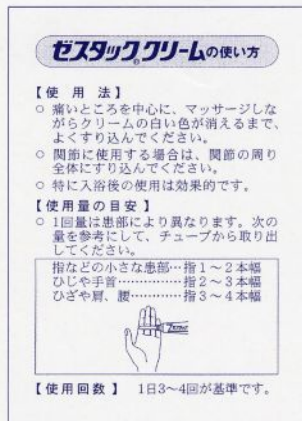 ゼスタック®クリームの使い方
【使用法】
○ 痛いところを中心に、マッサージしな
がらクリームの白い色が消えるまで、
よくすり込んでください。
○ 関節に使用する場合は、関節の周り
全体にすり込んでください。
○ 特に入浴後の使用は効果的です。
【使用量の目安】
○ 1回量は患部により異なります。次の
量を参考にして、チューブから取り出
してください。
指などの小さな患部…指1～2本幅
ひじや手首……………指2～3本幅
ひざや肩、腰…………指3～4本幅
【使用回数】 1日3～4回が基準です。